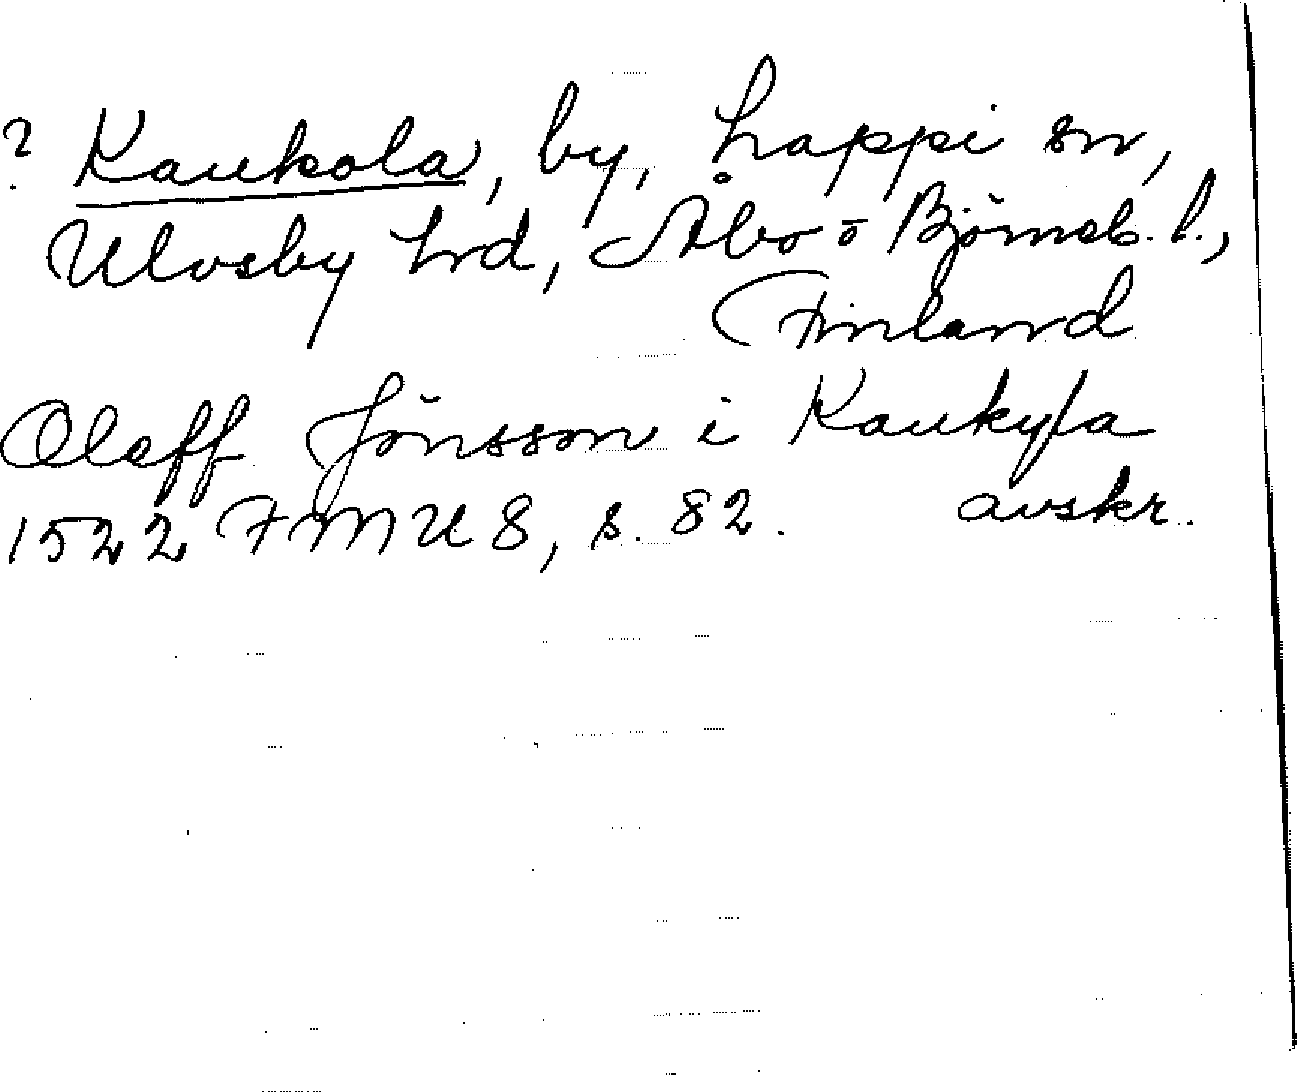 ? Kaukola, by, Lappi sn,
Ulvsby hrd, Åbo o Björneb. l.,
Finland
Oleff Jönsson i Kaukyla
1522 FMU 8, s. 82. avskr.